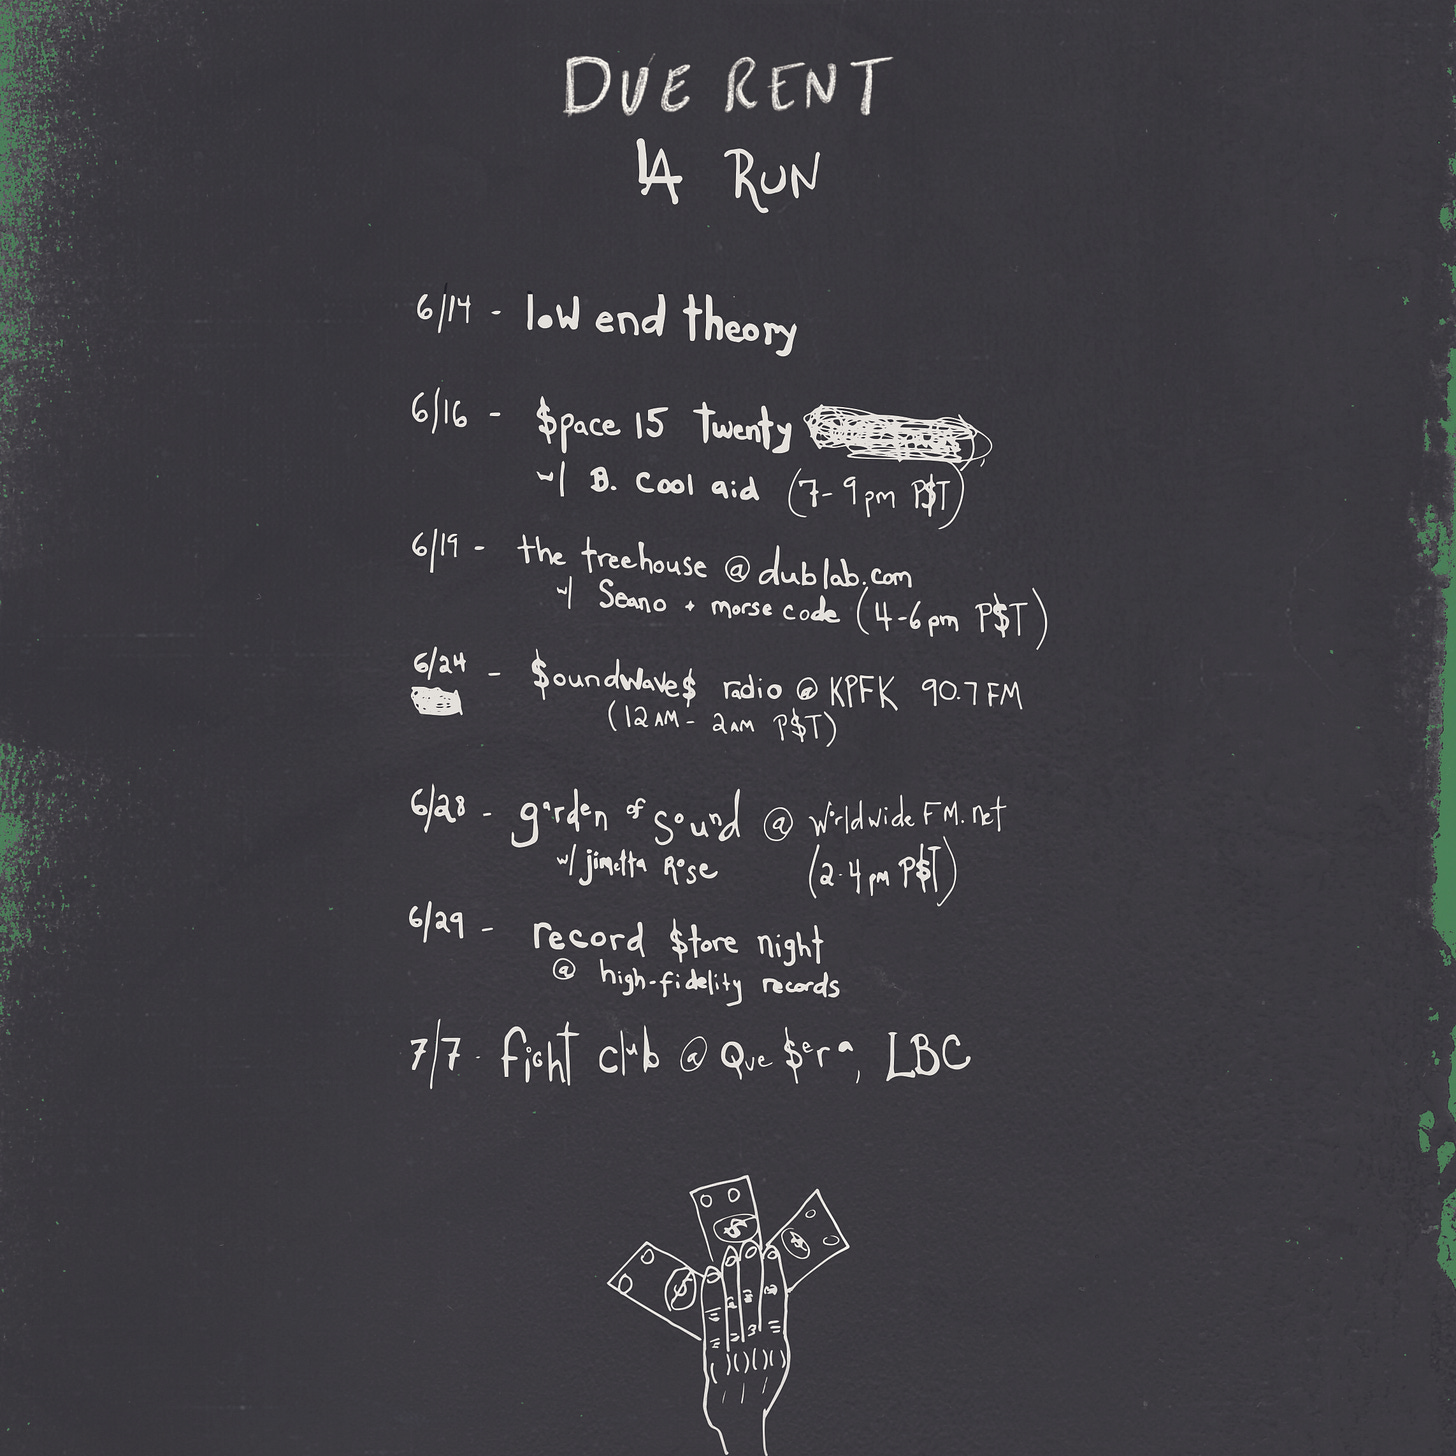 DUE RENT
LA RUN
6/14 - low end theory
6/16 - $pace 15 twenty
w/ B. Cool aid (7-9pm P$T)
6/19 - the treehouse @ dublab.com
w/ Seano + morse code (4-6pm P$T)
6/24 - $oundwave$ radio @ KPFK 90.7 FM
(12AM - 2AM P$T)
6/28 - garden of sound @ WorldwideFM.net
w/ jimetta Rose (2-4pm P$T)
6/29 - record $tore night
@ high-fidelity records
7/7 - fight club @ Que $era, LBC
$ $ $